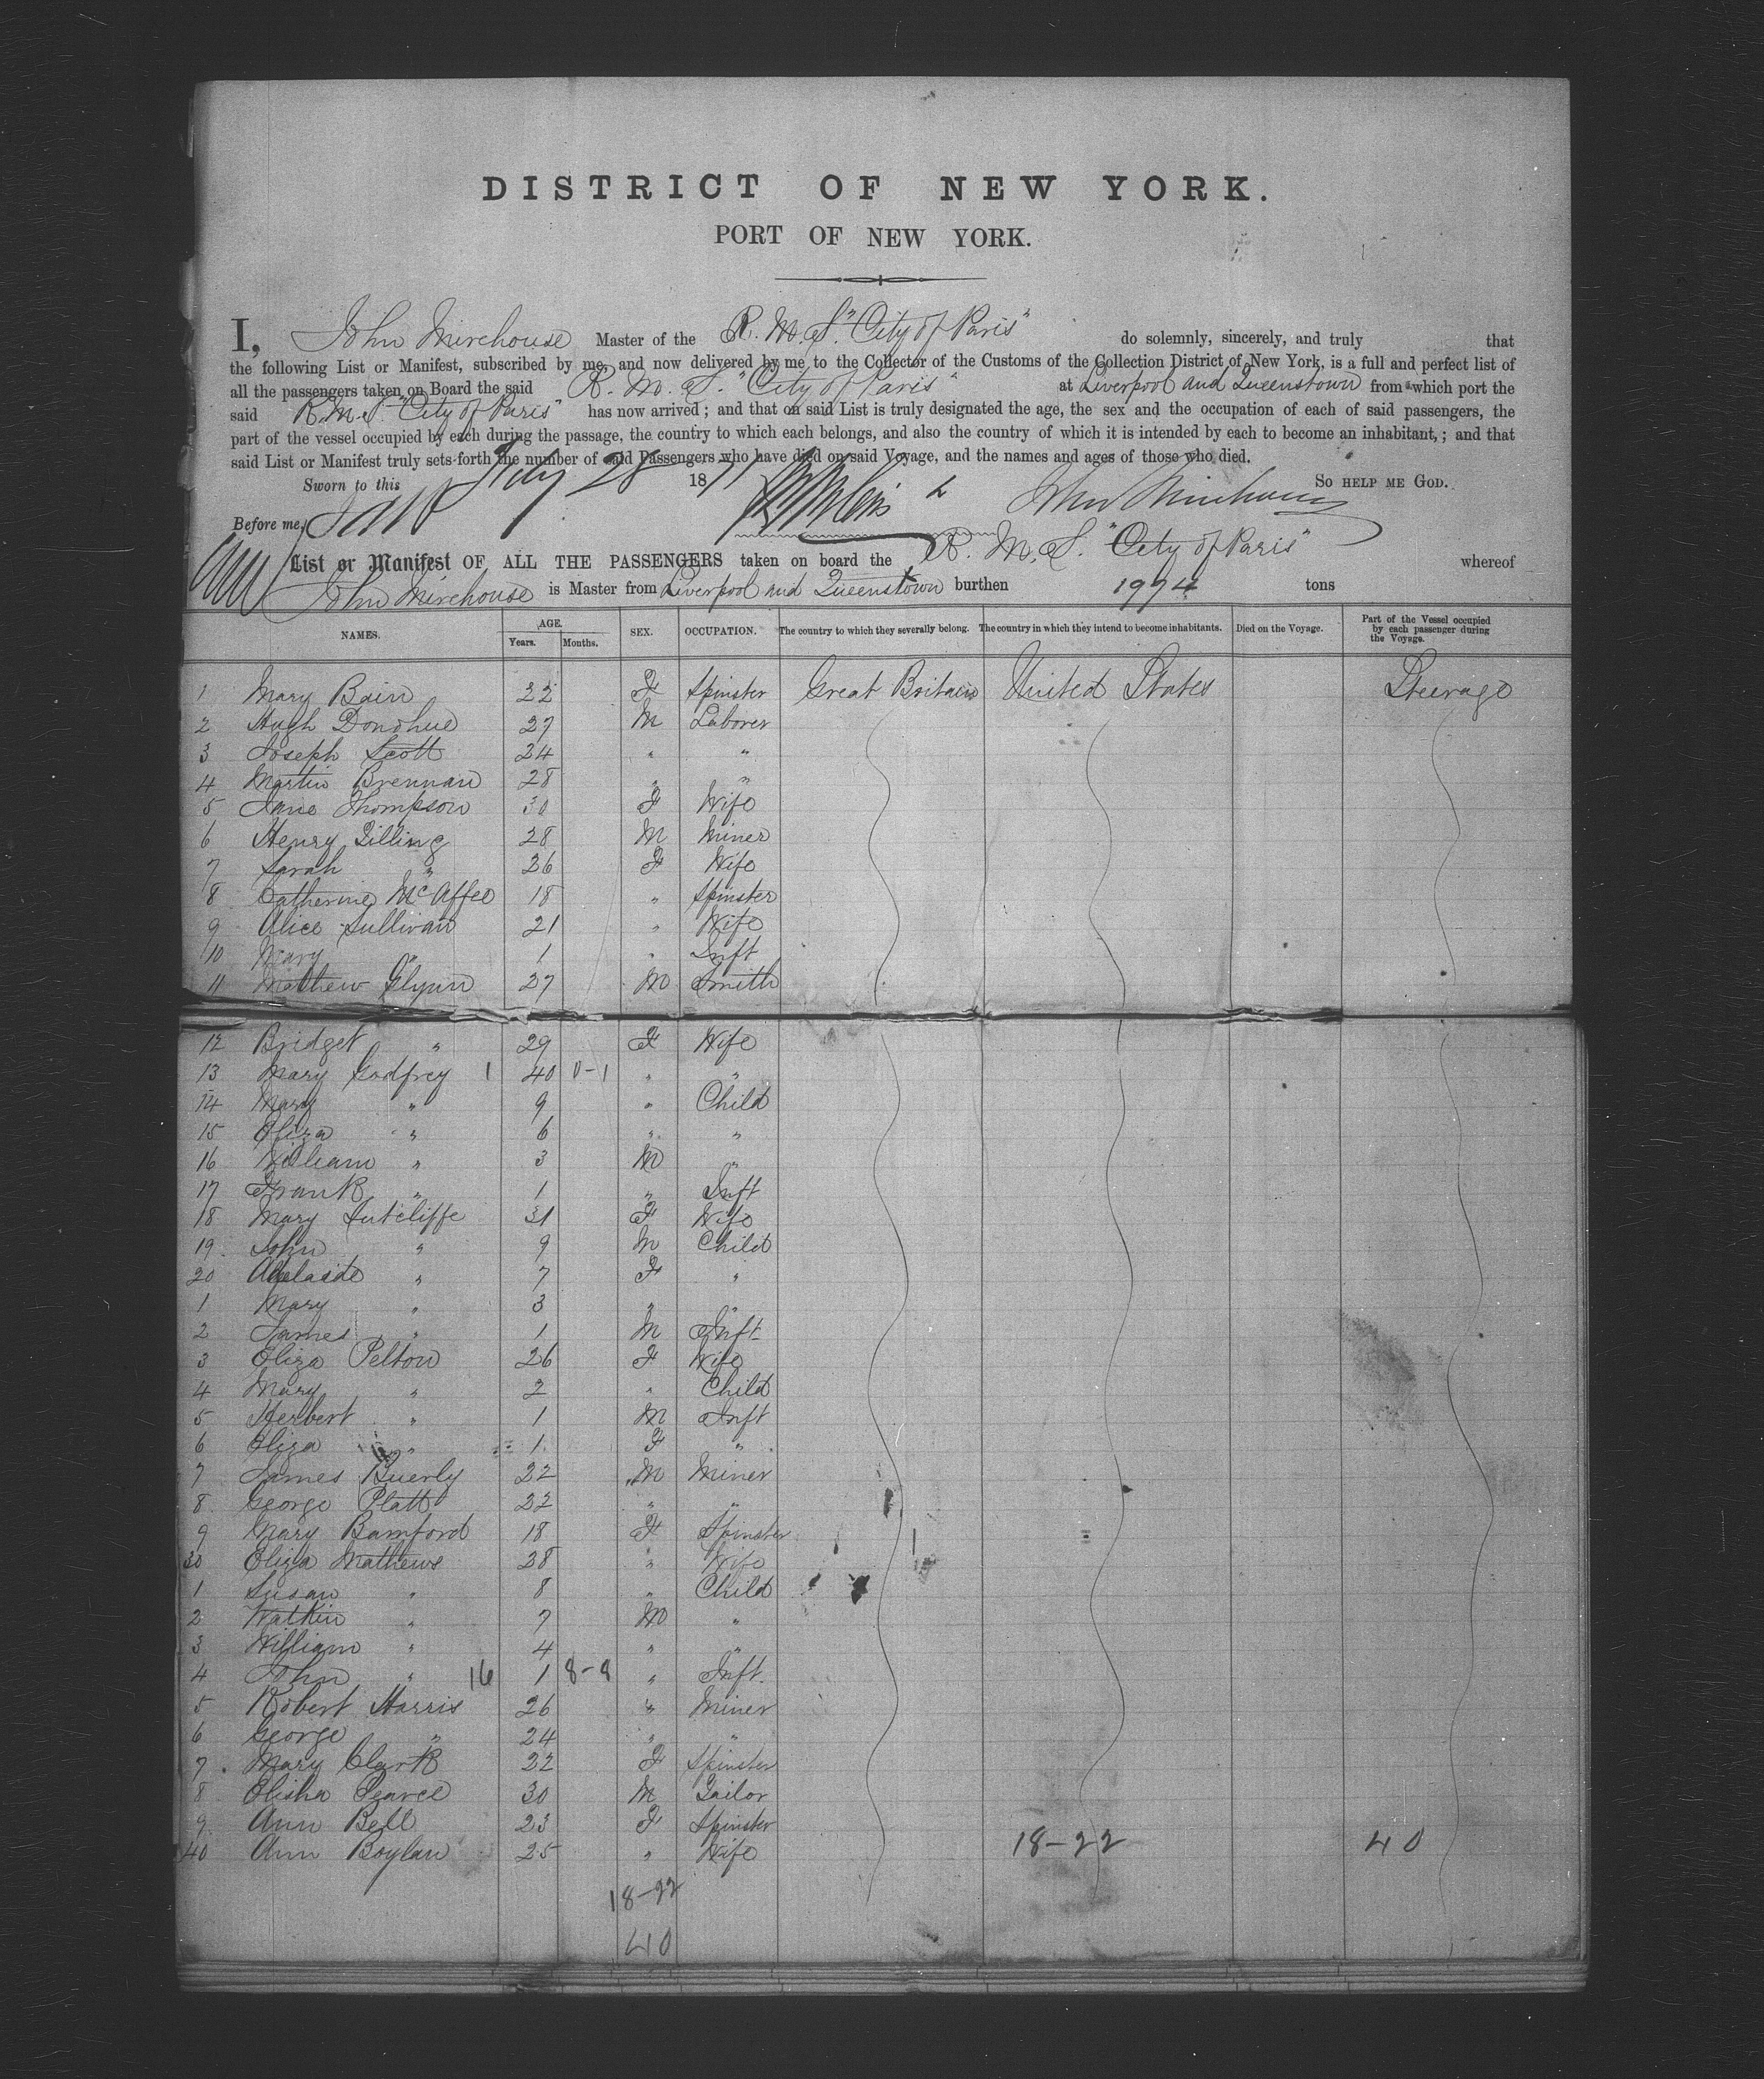 DISTRICT OF NEW YORK.
PORT OF NEW YORK.
I, John Mirehouse Master of the R. M. S. "City of Paris" do solemnly, sincerely, and truly that
the following List or Manifest, subscribed by me, and now delivered by me to the Collector of the Customs of the Collection District of New York, is a full and perfect list of
all the passengers taken on Board the said R. M. S. "City of Paris" at Liverpool and Queenstown from which port the
said R. M. S. "City of Paris" has now arrived; and that on said List is truly designated the age, the sex and the occupation of each of said passengers, the
part of the vessel occupied by each during the passage, the country to which each belongs, and also the country of which it is intended by each to become an inhabitant,; and that
said List or Manifest truly sets forth the number of said Passengers who have died on said Voyage, and the names and ages of those who died.
Sworn to this July 28 1871 So HELP ME GOD.
Before me, John Mirehouse
List or Manifest OF ALL THE PASSENGERS taken on board the R. M. S. "City of Paris" whereof
John Mirehouse is Master from Liverpool and Queenstown burthen 1974 tons
NAMES. AGE. Years. Months. SEX. OCCUPATION. The country to which they severally belong. The country in which they intend to become inhabitants. Died on the Voyage. Part of the Vessel occupied by each passenger during the Voyage.
1 Mary Bain 22 F Spinster Great Britain United States Steerage
2 Hugh Donohue 27 M Laborer
3 Joseph Scott 24 " "
4 Martin Brennan 28 " "
5 Jane Thompson 30 F Wife
6 Henry Tilling 28 M Miner
7 Sarah " 26 F Wife
8 Catherine McAffee 18 " Spinster
9 Alice Sullivan 21 " Wife
10 Mary " 1 " Inft
11 Mathew Glynn 27 M Smith
12 Bridget " 29 F Wife
13 Mary Godfrey 1 40 0-1 " "
14 Mary " 9 " Child
15 Eliza " 6 " "
16 William " 3 M "
17 Frank " 1 " Inft
18 Mary Sutcliffe 31 F Wife
19 John " 9 M Child
20 Adelaide " 7 F "
1 Mary " 3 " "
2 James " 1 M Inft
3 Eliza Pelton 26 F Wife
4 Mary " 2 " Child
5 Herbert " 1 M Inft
6 Eliza " 1 F "
7 James Buerly 22 M Miner
8 George Platt 22 " "
9 Mary Bamford 18 F Spinster
30 Eliza Mathews 38 " Wife
1 Susan " 8 " Child
2 Watkin " 7 M "
3 William " 4 " "
4 John " 16 1 8-8 " Inft.
5 Robert Harris 26 " Miner
6 George " 24 " "
7 Mary Clark 22 F Spinster
8 Elisha Pearce 30 M Tailor
9 Ann Bell 23 F Spinster
40 Ann Boylan 25 " Wife 18-22 40
18-22
40